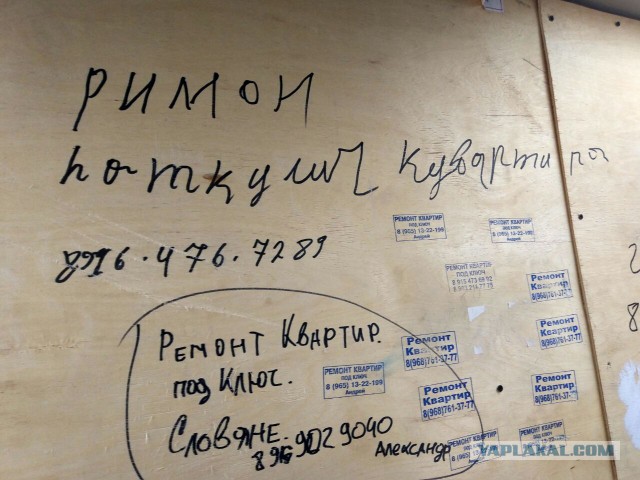 РИМОН
поткулич кувартира
8916.476.7289
РЕМОНТ КВАРТИР
ПОД КЛЮЧ
8 (965) 13-22-199
Андрей
РЕМОНТ КВАРТИР
ПОД КЛЮЧ
8 (965) 13-22-199
Андрей
РЕМОНТ КВАРТИР
ПОД КЛЮЧ
Ремонт
Квартир
8(968)761-37-77
Ремонт
Квартир
8(968)761-37-77
РЕМОНТ КВАРТИР.
под Ключ.
РЕМОНТ КВАРТИР
ПОД КЛЮЧ
8 (965) 13-22-199
Андрей
Ремонт
Квартир
8(968)761-37-77
Ремонт
Квартир
8(968)761-37-77
Ремонт
Квартир
8(968)761-37-77
СЛОВЯНЕ.
9029040
Александр
РЕМОНТ КВАРТИР
YAPLAKAL.COM